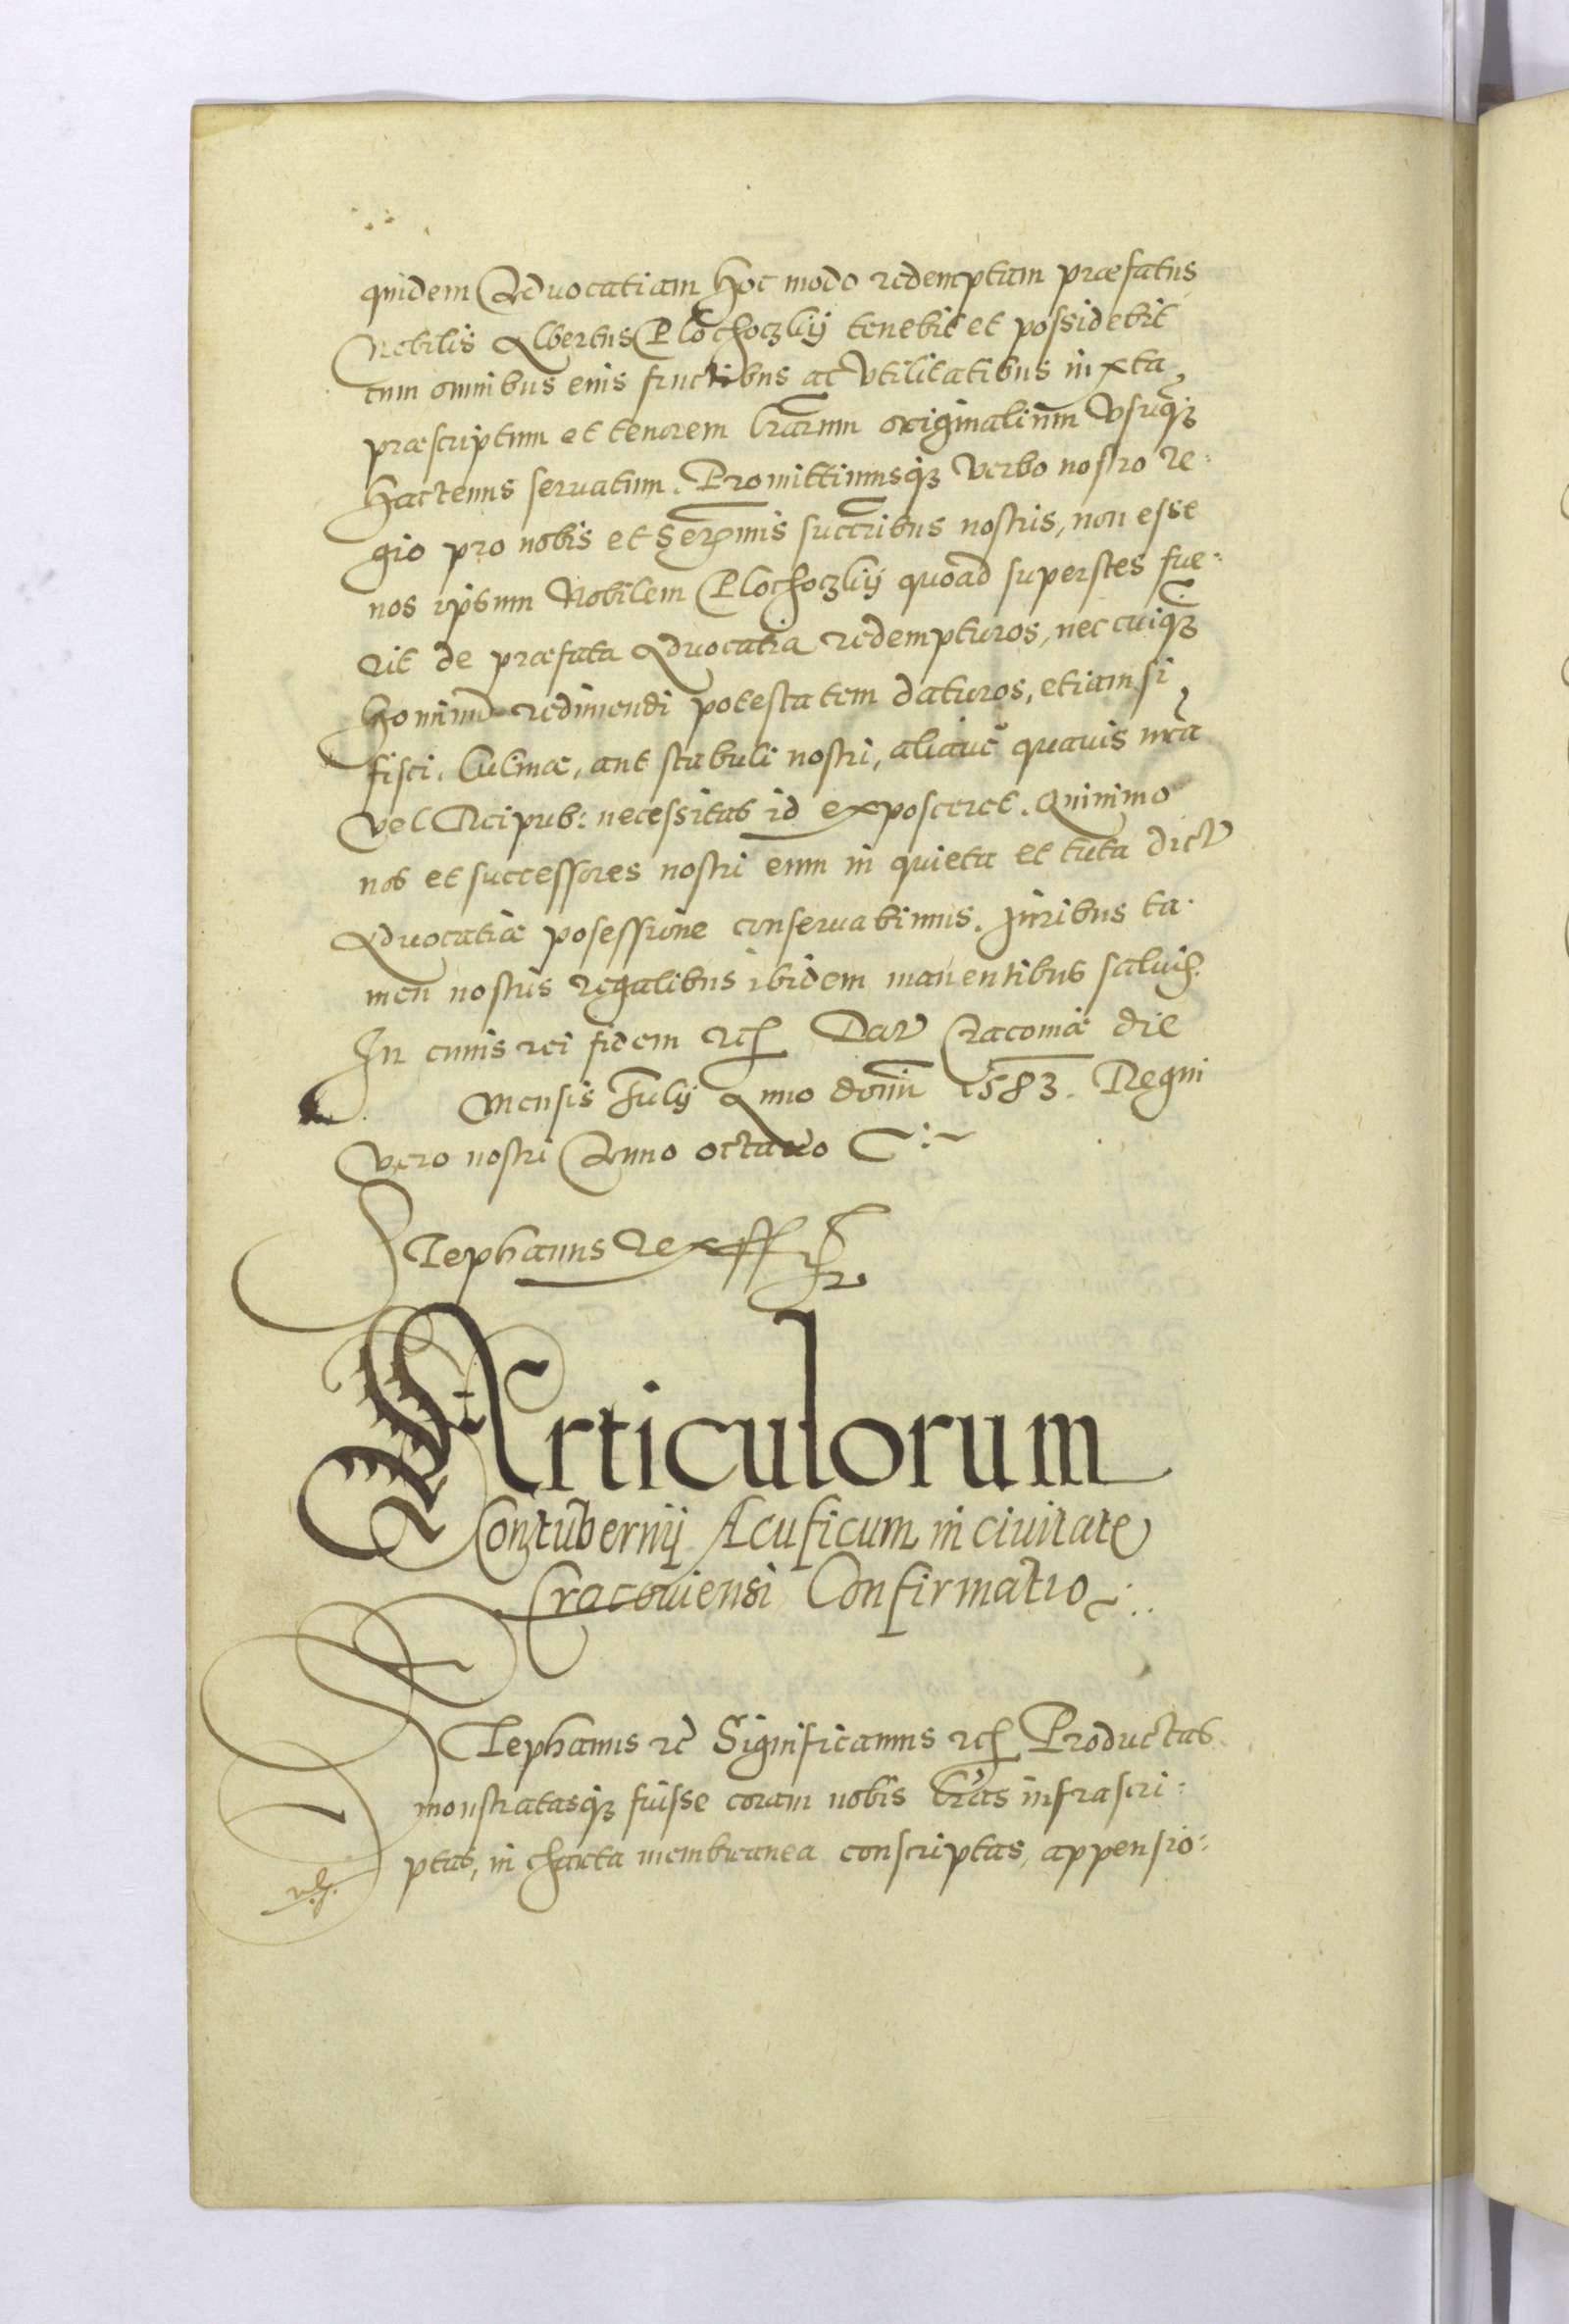 quidem Advocatiam hoc modo redemptam præfatus
Nobilis Albertus Plochoczkij tenebit et possidebit
cum omnibus eius fructibus ac vtilitatibus iuxta
præscriptum et tenorem lrarum originalium vsumq3
hactenus seruatum. Promittimusq3 verbo nostro re=
gio pro nobis et Sermis succribus nostris, non esse
nos ipsum Nobilem Plochoczkij quoad superstes fue=
rit de præfata Advocatia redempturos, nec cuiq3
hominū redimendi potestatem daturos, etiam si
fisci, Culinæ, aut stabuli nostri, aliaue quauis nrā
vel Reipub: necessitas id exposceret. Quinimo
nos et successores nostri eum in quieta et tuta dict
Advocatiæ posessione conseruabimus. Juribus ta.
men nostris regalibus ibidem manentibus saluis.
In cuius rei fidem etc Dat Cracoviæ die
mensis Julij Anno domi 1583. Regni
vero nostri Anno octauo
Stephanus Rex ss
Articulorum
Contubernij Acuficum in ciuitate
Cracouiensi Confirmatio
Stephanus etc Significamus etc Productas
monstratasq3 fuisse coram nobis lras infrascri=
ptas, in charta membranea conscriptas, appensio=